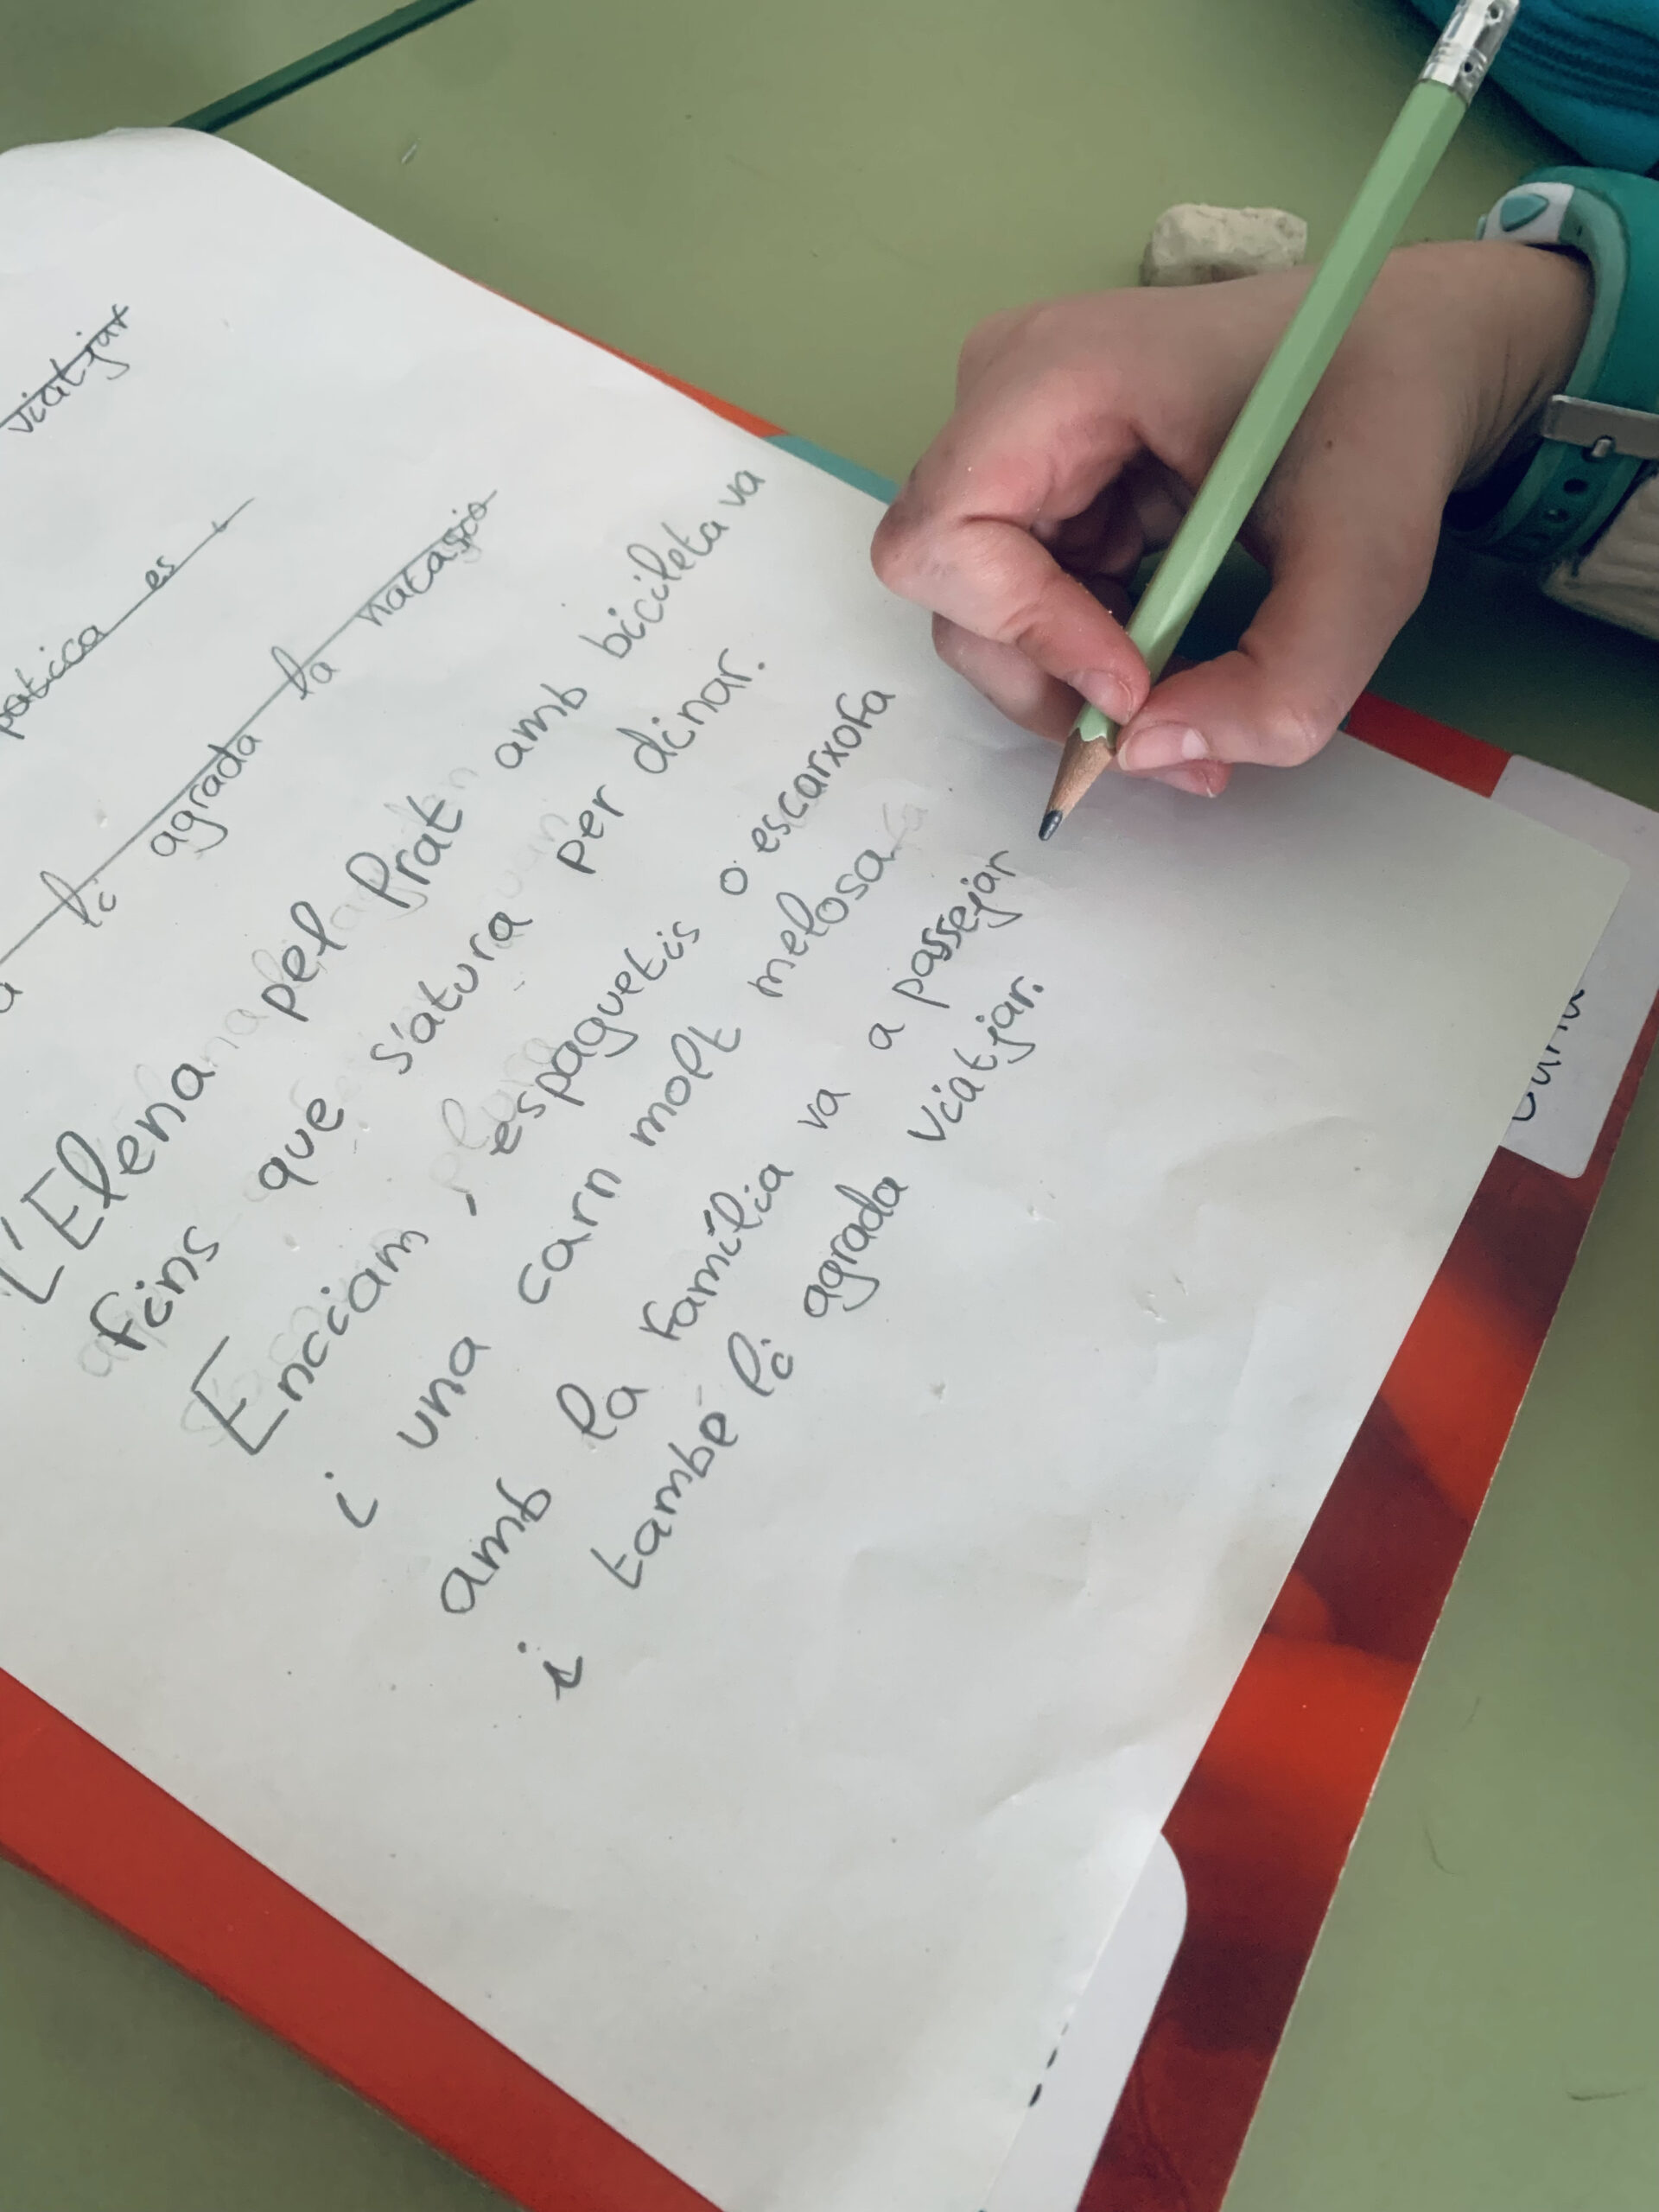 viatjar
es
li agrada la natasio
L'Elena pel Prat amb bicileta va
fins que s'atura per dinar.
Enciam, espaguetis o escarxofa
i una carn molt melosa
amb la família va a passejar
i també li agrada viatjar.